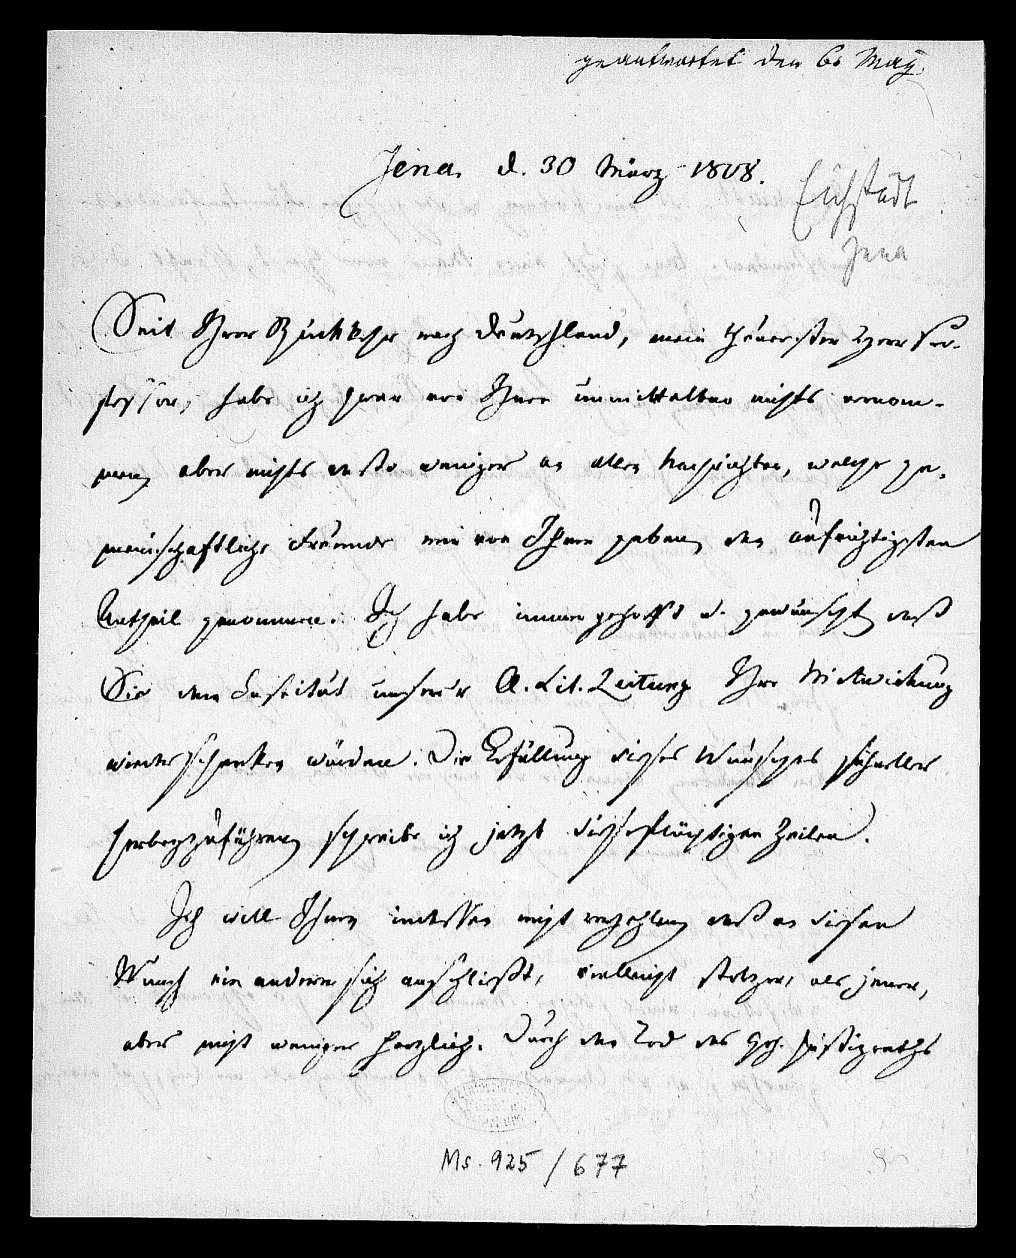 geantwortet den 6 May.
Jena. d. 30 März 1808.
Eichstädt
Jena
Seit Ihrer Rückkehr nach Deutschland, mein theuerster Herr Pro-
fessor, habe ich zwar von Ihnen unmittelbar nichts vernom-
men, aber nichts desto weniger an allen Nachrichten, welche ge-
meinschaftliche Freunde mir von Ihnen gaben, den aufrichtigsten
Antheil genommen. Ich habe immer gehofft u. gewünscht, daß
Sie dem Institut unserer A. Lit. Zeitung Ihre Mitwirkung
wieder schenken würden. Die Erfüllung dieses Wunsches schneller
herbeyzuführen, schreibe ich jetzt diese flüchtigen Zeilen.
Ich will Ihnen indessen nicht verhehlen, daß an diesen
Wunsch ein anderer sich anschließt, vielleicht stolzer, als jener,
aber nicht weniger herzlich. Durch den Tod des Geh. Justizraths
Ms. 925 / 677